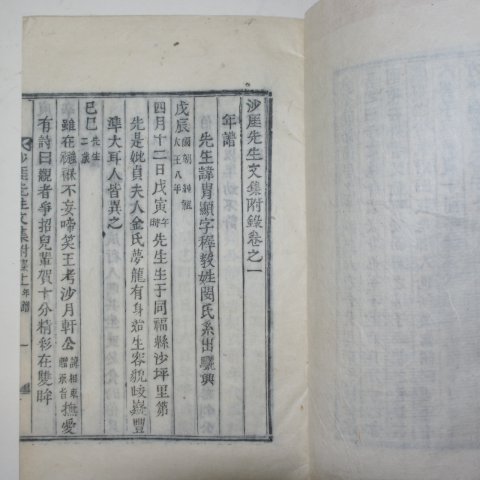 沙厓先生文集附錄卷之一
年譜
先生諱冑顯字穉敎姓閔氏系出驪興
戊辰 國朝純祖大王八年
四月十二日戊寅 午時 先生生于同福縣沙坪里第
先是妣貞夫人金氏夢龍有身始生容貌峻嶷豐
準大耳人皆異之
己巳 先生二歲
雖在襁褓不妄啼笑王考沙月軒公 諱相東贈承旨 撫愛
有詩曰觀者爭招兒輩賀十分精彩在雙眸
沙厓先生文集 附錄上 年譜 一